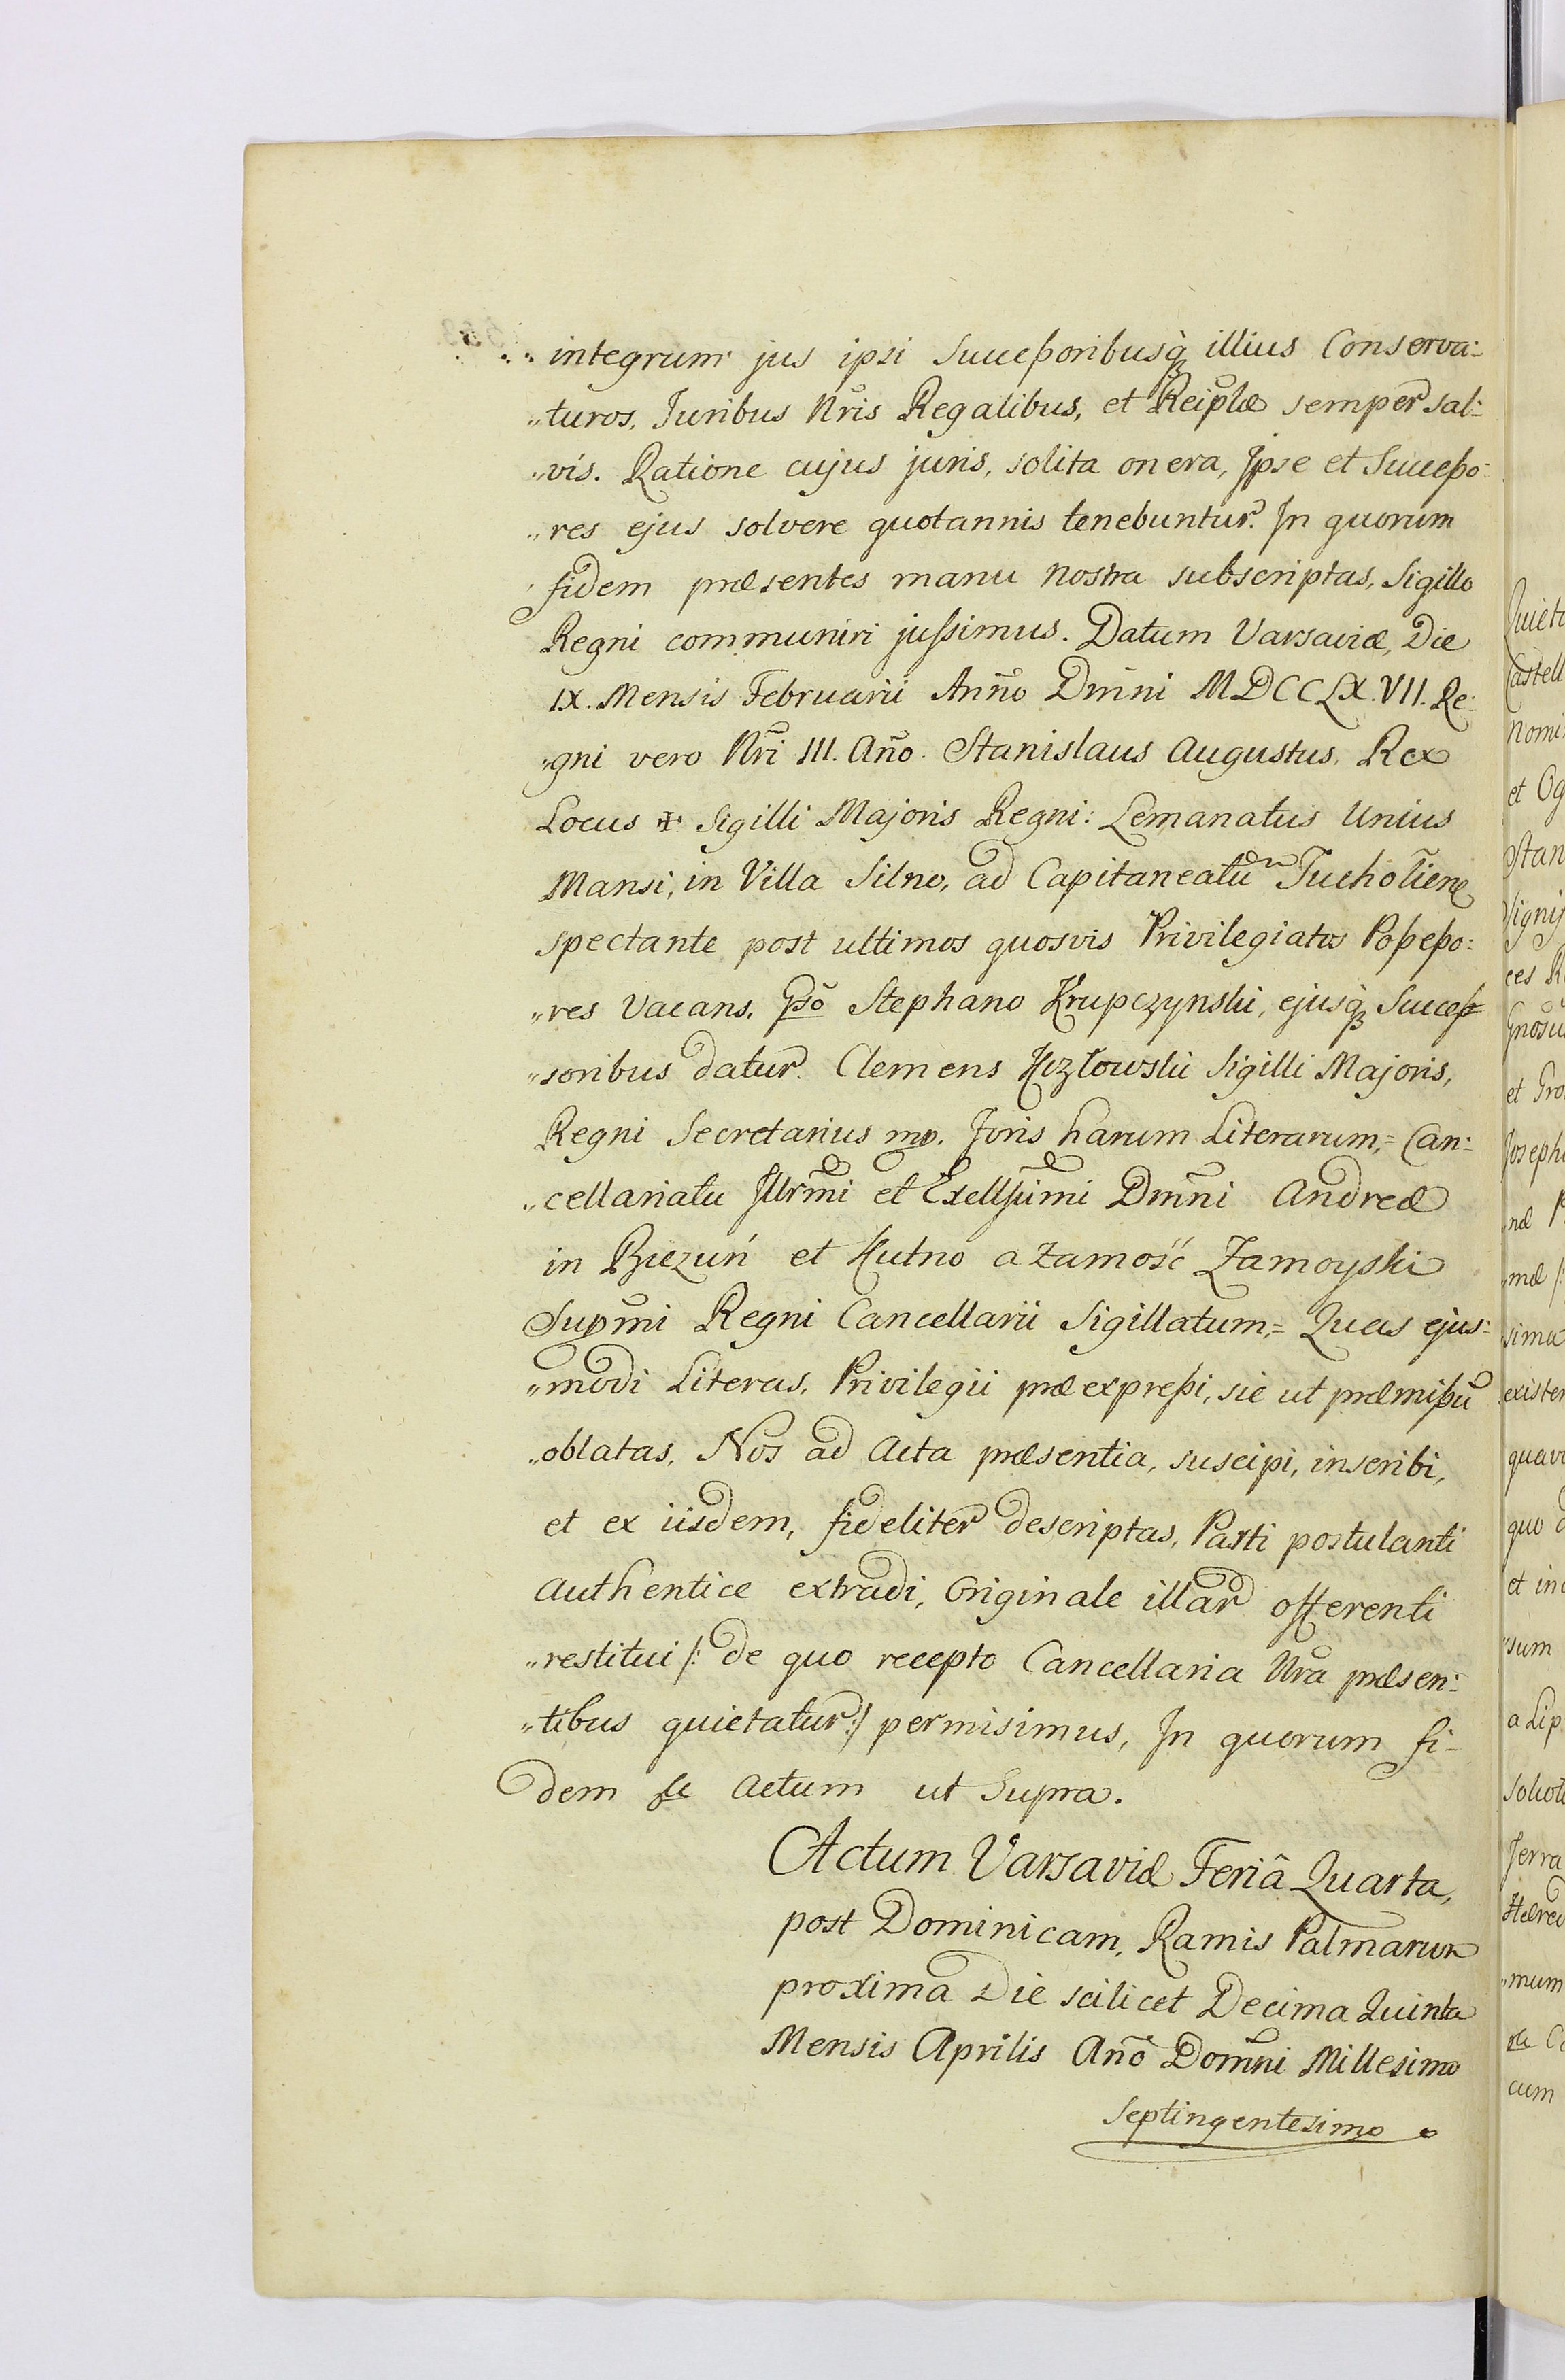 integrum jus ipsi Successoribusq́ illius Conserva:
„turos, Juribus Nr̃is Regalibus, et Reip̃læ semper sal:
„vis. Ratione cujus juris, solita onera, Ipse et Successo:
„res ejus solvere quotannis tenebuntur. In quorum
fidem præsentes manu nostra subscriptas, Sigillo
Regni communiri jussimus. Datum Varsaviæ, Die
IX. Mensis Februarii Anño Dm̃ni MDCCLX.VII. Re:
„gni vero Nr̃i III. Año. Stanislaus Augustus, Rex
Locus ✠ Sigilli Majoris Regni: Lemanatus Unius
Mansi, in Villa Silno, ad Capitaneatũ Tucholien̄
spectante post ultimos quosvis Privilegiatos Possesso:
„res vacans, Gsõ Stephano Krupczynski, ejusq́ Succes
„soribus datur. Clemens Kozłowski Sigilli Majoris,
Regni Secretarius mp. Foris harum Literarum,= Can:
„cellariatu Illr̃mi et Exellsũmi Dm̃ni Andreæ
in Biezuń et Kutno a Zamość Zamoyski
Supr̃mi Regni Cancellarii Sigillatum,= Quas ejus:
„modi Literas, Privilegii præexpressi, sic ut præmissũ
„oblatas, Nos ad Acta præsentia, suscipi, inscribi,
et ex iisdem, fideliter descriptas, Parti postulanti
authentice extradi, Originale illar offerenti
„restitui /: de quo recepto Cancellaria Nr̃a præsen:
„tibus quietatur :/ permisimus, In quorum fi-
dem &c Actum ut Supra.
Actum Varsaviæ Feriâ Quarta,
post Dominicam, Ramis Palmarum
proxima Die scilicet Decima Quinta
Mensis Aprilis Añõ Dom̃ni Millesimo
Septingentesimo
Castell
et Og
Stan
et Gro
Joseph
sima
existen
quo d
sum
a Lip
Terra
mum
cum